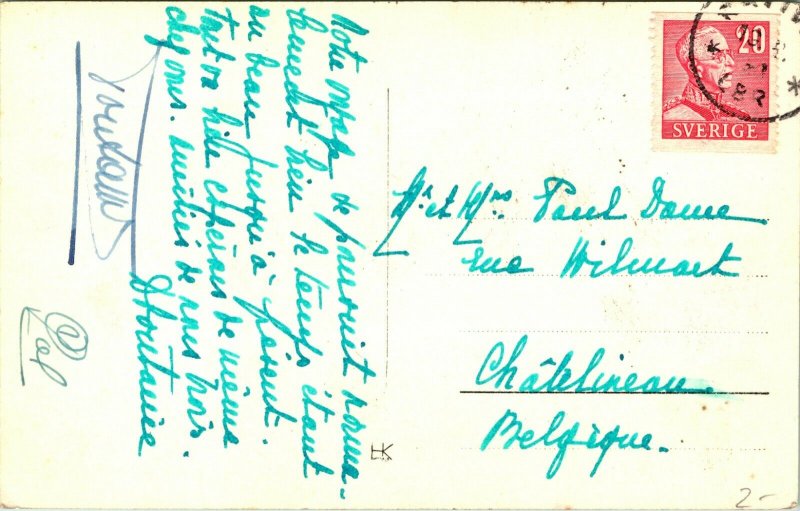 Notre voyage se poursuit norma-
lement bien le temps étant
au beau jusqu'à présent.
Tout va bien espérons de même
chez vous. amitiés de nous trois.
20
SVERIGE
Mr et Mme Paul Dame
rue Wilmart
Châtelineau
Belgique.
EK
2-